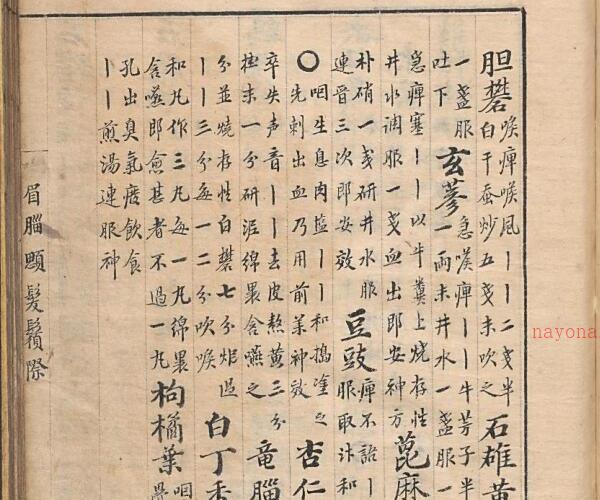 胆礬
喉痺喉風丨丨二戔半
白干蚕炒五戔末吹之
石雄黄
一盞服
吐下
玄蔘
急喉痺丨丨牛芳子半
一兩末井水一盞服一
急痺塞丨丨以牛糞上烧存性
井水调服一戔血出即安神方
蓖麻
朴硝一戔研井水服
連晋三次即安效
豆豉
痺不語丨
服取汁和
○
咽生息肉塩丨丨和搗塗之
先刺出血乃用前葉神效
杏仁
卒失声音丨丨去皮熬黄三分
桂末一分研泥绵裹含嚥之
竜腦
分並燒存性白礬七分炸過
丨丨三分每一二分吹喉
白丁香
和丸作三丸每一丸绵裹
含嚥即愈甚者不過一丸
枸橘葉
咽
孔出臭氣瘧飲食
丨丨煎湯連服神
眉腦顋髮鬚際
nayona